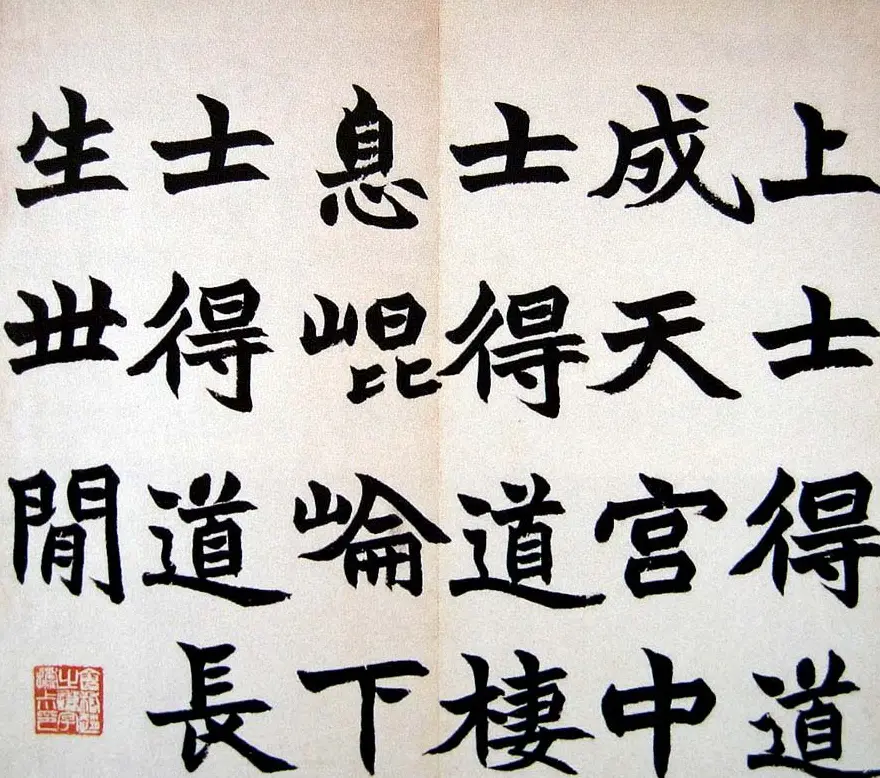 上士得道
成天宫中
士得道棲
息崐崘下
士得道長
生丗閒